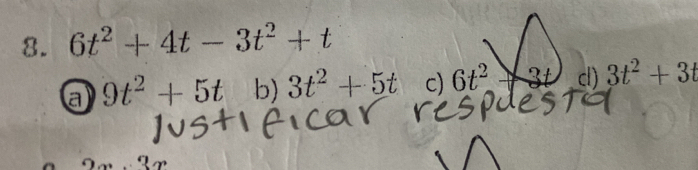 8. 6t² + 4t − 3t² + t
a) 9t² + 5t b) 3t² + 5t c) 6t² + 3t d) 3t² + 3t
Justificar respuesta